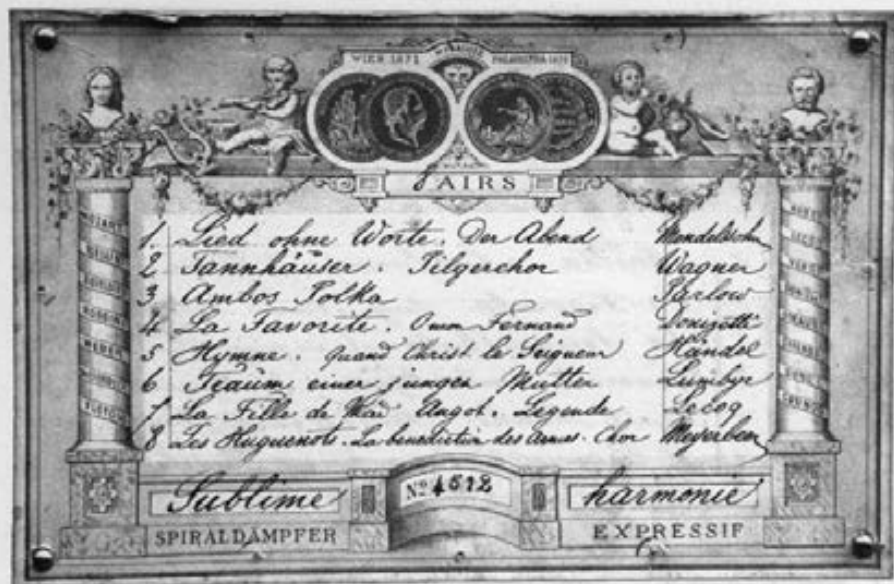 WIEN 1873 PHILADELPHIA 1876
8 AIRS
1. Lied ohne Worte. Der Abend Mendelssohn
2 Tannhäuser. Pilgerchor Wagner
3 Ambos Polka Parlow
4 La Favorite. O mon Fernand Donizetti
5 Hymne. Quand Christ le Seigneur Händel
6 Traum einer jungen Mutter Lumbye
7 La Fille de Mad Angot. Legende Lecoq
8 Les Huguenots. La benediction des armes. Chor Meyerbeer
MOZART
WEBER
Sublime harmonie
No 4512
SPIRALDÄMPFER EXPRESSIF